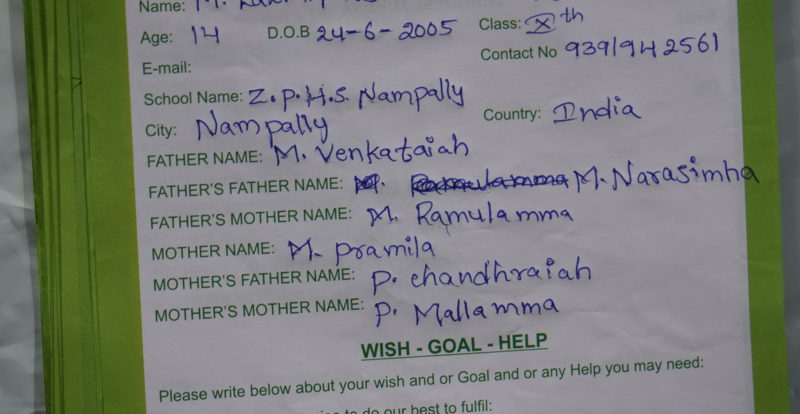 Name: M.
Age: 14 D.O.B 24-6-2005 Class: X th
E-mail: Contact No 9391942561
School Name: Z.P.H.S. Nampally
City: Nampally Country: India
FATHER NAME: M. Venkataiah
FATHER'S FATHER NAME: M. Ramulamma M. Narasimha
FATHER'S MOTHER NAME: M. Ramulamma
MOTHER NAME: M. Pramila
MOTHER'S FATHER NAME: P. Chandhraiah
MOTHER'S MOTHER NAME: P. Mallamma
WISH - GOAL - HELP
Please write below about your wish and or Goal and or any Help you may need:
to do our best to fulfil: